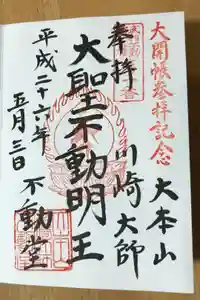 大開帳参拝記念
大本山
川崎大師
奉拝
大聖不動明王
不動堂
平成二十六年
五月三日